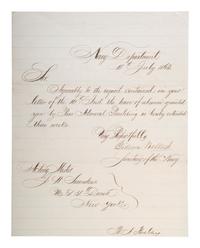 Navy Department
July 1864
Sir,
Agreeably to the request contained in your
letter of the 10th Inst. the leave of absence granted
you by Rear Admiral Paulding is hereby extended
three weeks.
Very Respectfully
Gideon Welles
Secretary of the Navy
Acting Master
New York